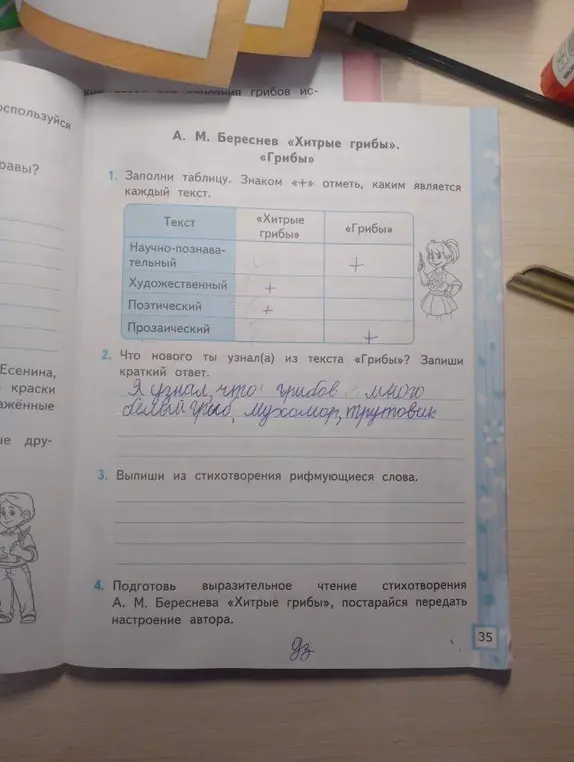 описания грибов ис-
оспользуйся
равы?
Есенина,
краски
ажённые
ые дру-
А. М. Береснев «Хитрые грибы».
«Грибы»
1. Заполни таблицу. Знаком «+» отметь, каким является
каждый текст.
Текст «Хитрые грибы» «Грибы»
Научно-познава-
тельный +
Художественный +
Поэтический +
Прозаический +
2. Что нового ты узнал(а) из текста «Грибы»? Запиши
краткий ответ.
Я узнал, что грибов много
белый гриб, мухомор, трутовик
3. Выпиши из стихотворения рифмующиеся слова.
4. Подготовь выразительное чтение стихотворения
А. М. Береснева «Хитрые грибы», постарайся передать
настроение автора.
дз
35